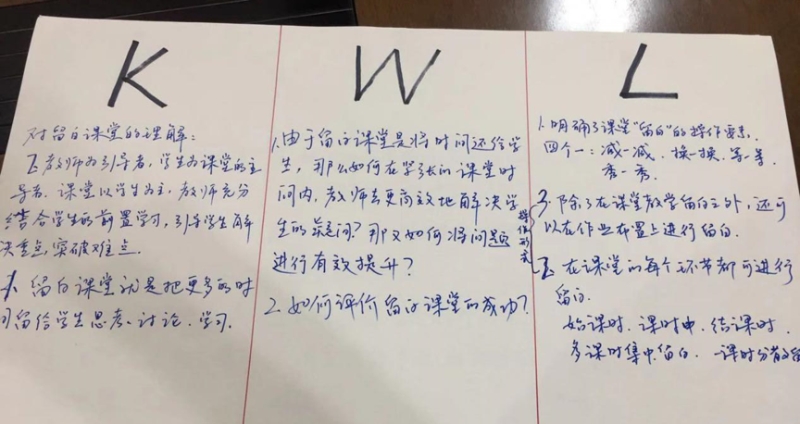 K
对留白课堂的理解：
2.教师为引导者，学生为课堂的主
导者。课堂以学生为主，教师充分
结合学生的前置学习，引导学生解
决重点，突破难点。
1.留白课堂就是把更多的时
间留给学生思考、讨论、学习.
W
1.由于留白课堂是将时间还给学
生，那么如何在学长的课堂时
间内，教师去更高效地解决学
生的疑问？那又如何将问题
进行有效提升？
2.如何评价留白课堂的成功？
L
1.明确了课堂“留白”的操作要素.
四个一：减一减、换一换、等一等、
秀一秀.
操作形式
3.除了在课堂教学留白之外，还可
以在作业布置上进行留白.
2.在课堂的每个环节都可进行
留白.
始课时、课时中、结课时.
多课时集中留白.一课时分散留